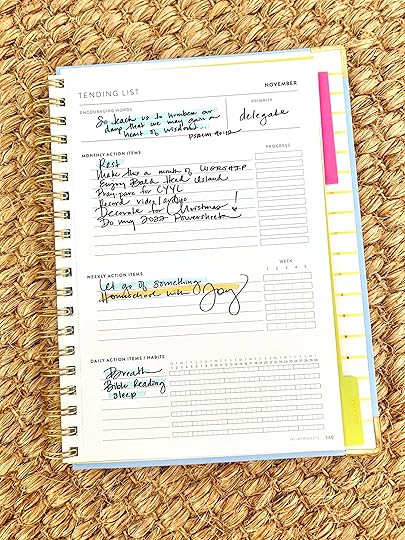 TENDING LIST
NOVEMBER
ENCOURAGING WORDS
So teach us to number our
days that we may gain a
heart of wisdom...
Psalm 90:12
PRIORITY
delegate
MONTHLY ACTION ITEMS
PROGRESS
Rest
Make this a month of WORSHIP
Enjoy Bald Head Island
Prep for CYYL
Record video/audio
Decorate for Christmas!
Do my 2022 Powersheets
WEEKLY ACTION ITEMS
WEEK
1 2 3 4 5
Let go of something
Homeschool with Joy!
DAILY ACTION ITEMS / HABITS
1 2 3 4 5 6 7 8 9 10 11 12 13 14 15 16 17 18 19 20 21 22 23 24 25 26 27 28 29 30
Breath
Bible Reading
Sleep
POWERSHEETS